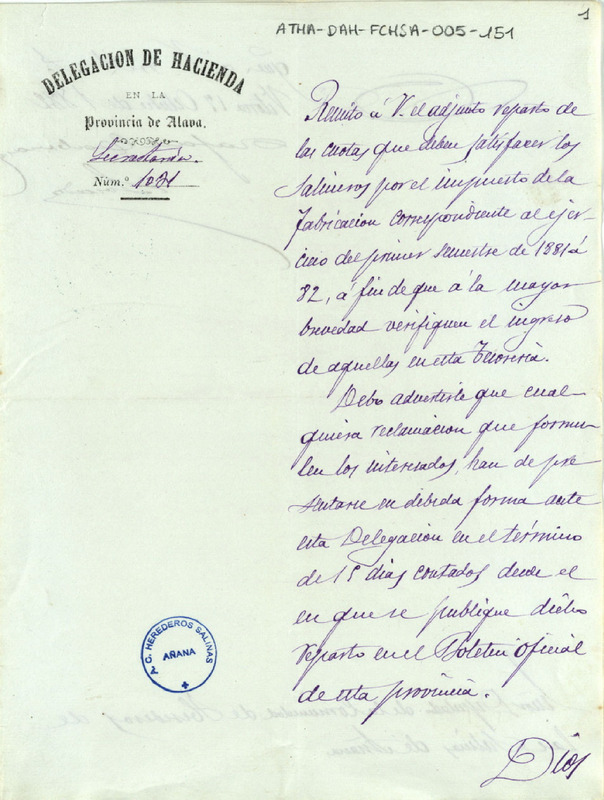 1
ATHA-DAH-FCHSA-005-151
DELEGACION DE HACIENDA
EN LA
Provincia de Alava.
Secretaría.
Núm.º 1031
Remito á V. el adjunto reparto de
las cuotas que deben satisfacer los
salineros por el impuesto de la
fabricacion correspondiente al ejer-
cicio del primer semestre de 1881 á
82, á fin de que á la mayor
brevedad verifiquen el ingreso
de aquellas en esta Tesorería.
Debo advertirle que cual-
quiera reclamacion que formu-
len los interesados, han de pre
sentarse en debida forma ante
esta Delegacion en el término
de 15 dias contados desde el
en que se publique dicho
reparto en el Boletin Oficial
de esta provincia.
Dios
A. C. HEREDEROS SALINAS
AÑANA